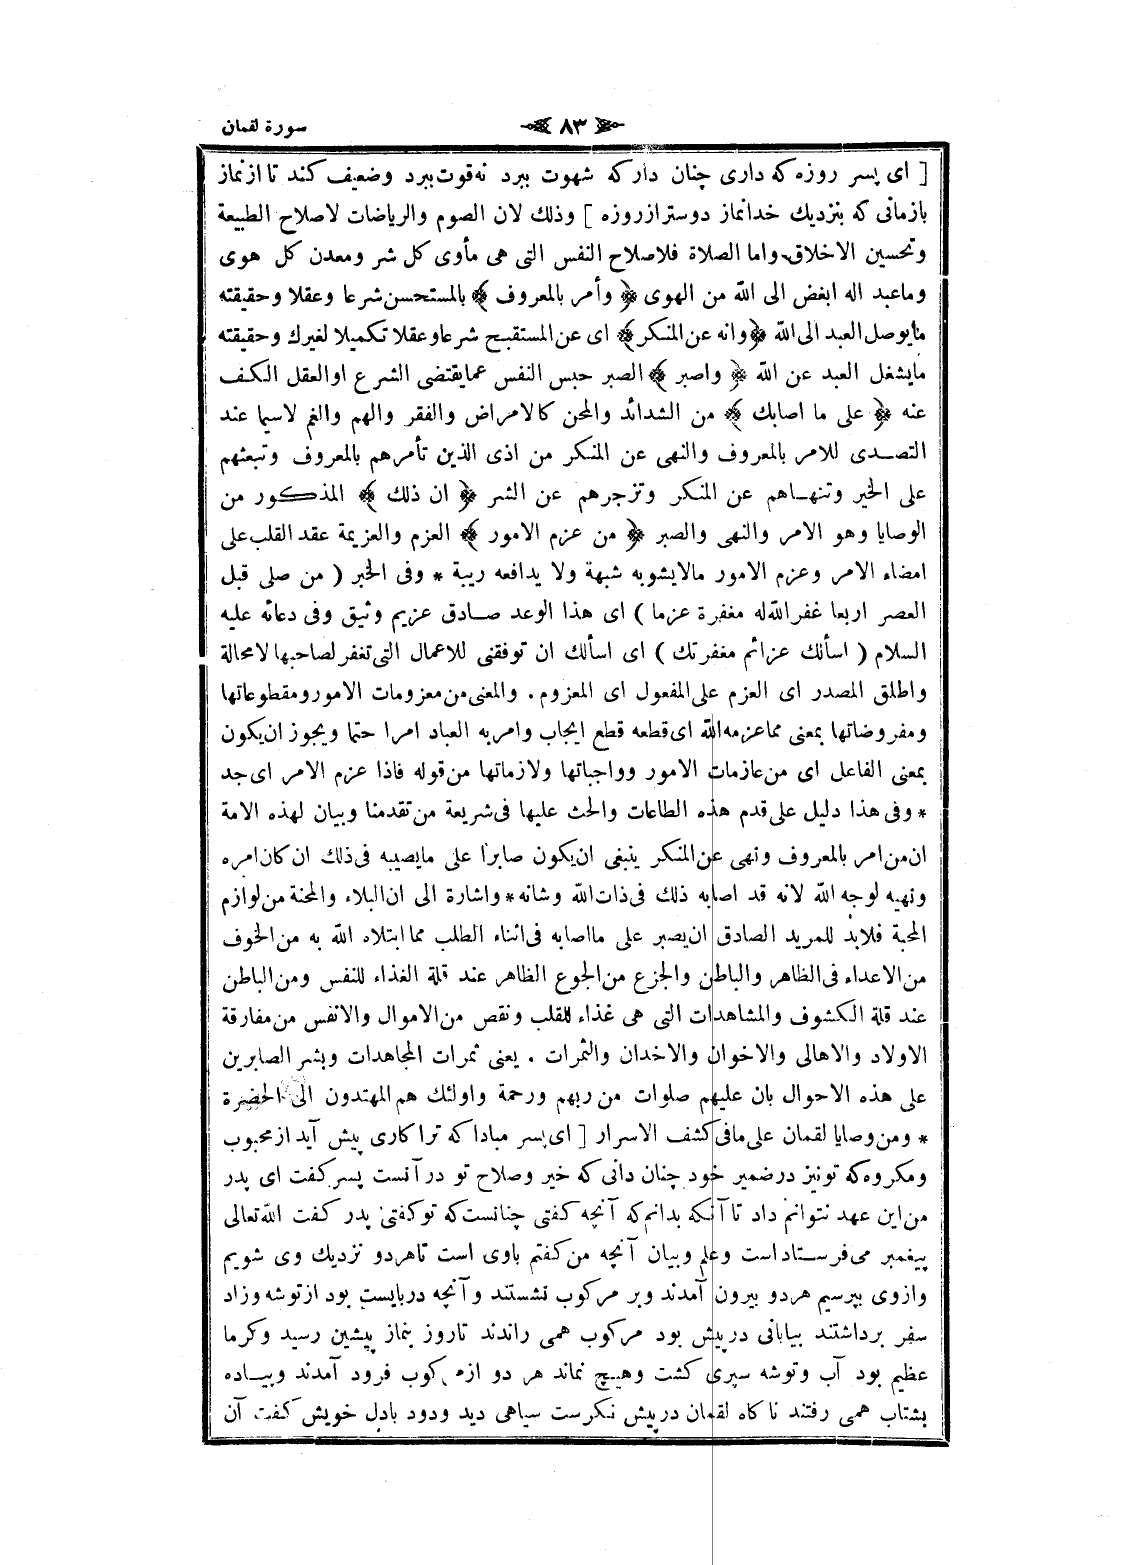 سورة لقمان
٨٣
[ اى پسر روزه كه دارى چنان دار كه شهوت ببرد نه قوت ببرد وضعيف كند تا از نماز
بازمانى كه بنزديك خدا نماز دوستر از روزه ] وذلك لان الصوم والرياضات لاصلاح الطبيعة
وتحسين الاخلاق واما الصلاة فلاصلاح النفس التى هى مأوى كل شر ومعدن كل هوى
وماعبد اله ابغض الى الله من الهوى ﴿ وأمر بالمعروف ﴾ بالمستحسن شرعا وعقلا وحقيقته
مايوصل العبد الى الله ﴿ وانه عن المنكر ﴾ اى عن المستقبح شرعا وعقلا تكميلا لغيرك وحقيقته
مايشغل العبد عن الله ﴿ واصبر ﴾ الصبر حبس النفس عما يقتضى الشرع او العقل الكف
عنه ﴿ على ما اصابك ﴾ من الشدائد والمحن كالامراض والفقر والهم والغم لاسيما عند
التصدى للامر بالمعروف والنهى عن المنكر من اذى الذين تأمرهم بالمعروف وتبعثهم
على الخير وتنهاهم عن المنكر وتزجرهم عن الشر ﴿ ان ذلك ﴾ المذكور من
الوصايا وهو الامر والنهى والصبر ﴿ من عزم الامور ﴾ العزم والعزيمة عقد القلب على
امضاء الامر وعزم الامور مالايشوبه شبهة ولا يدافعه ريبة * وفى الخبر ( من صلى قبل
العصر اربعا غفر الله له مغفرة عزما ) اى هذا الوعد صادق عزيم وثيق وفى دعائه عليه
السلام ( اسألك عزائم مغفرتك ) اى اسألك ان توفقنى للاعمال التى تغفر لصاحبها لامحالة
واطلق المصدر اى العزم على المفعول اى المعزوم . والمعنى من معزومات الامور ومقطوعاتها
ومفروضاتها بمعنى مما عزمه الله اى قطعه قطع ايجاب وامر به العباد امرا حتما ويجوز ان يكون
بمعنى الفاعل اى من عازمات الامور وواجباتها ولازماتها من قوله فاذا عزم الامر اى جد
* وفى هذا دليل على قدم هذه الطاعات والحث عليها فى شريعة من تقدمنا وبيان لهذه الامة
ان من امر بالمعروف ونهى عن المنكر ينبغى ان يكون صابرا على مايصيبه فى ذلك ان كان امره
ونهيه لوجه الله لانه قد اصابه ذلك فى ذات الله وشانه * واشارة الى ان البلاء والمحنة من لوازم
المحبة فلابد للمريد الصادق ان يصبر على مااصابه فى اثناء الطلب مما ابتلاه الله به من الخوف
من الاعداء فى الظاهر والباطن والجزع من الجوع الظاهر عند قلة الغذاء للنفس ومن الباطن
عند قلة الكشوف والمشاهدات التى هى غذاء للقلب ونقص من الاموال والانفس من مفارقة
الاولاد والاهالى والاخوان والاخدان والثمرات . يعنى ثمرات المجاهدات وبشر الصابرين
على هذه الاحوال بان عليهم صلوات من ربهم ورحمة واولئك هم المهتدون الى الحضرة
* ومن وصايا لقمان على مافى كشف الاسرار [ اى پسر مبادا كه ترا كارى پيش آيد از محبوب
ومكروه كه تونيز در ضمير خود چنان دانى كه خير وصلاح تو در آنست پسر كفت اى پدر
من اين عهد نتوانم داد تا آنكه بدانم كه آنچه كفتى چنانست كه تو كفتى پدر كفت الله تعالى
پيغمبر مى فرستاد است وعلم وبيان آنچه من كفتم باوى است تا هر دو نزديك وى شويم
وازوى بپرسيم هردو بيرون آمدند وبر مركوب نشستند وآنچه دربايست بود از توشه وزاد
سفر برداشتند بيابانى در پيش بود مركوب همى راندند تا روز بنماز پيشين رسيد وكرما
عظيم بود آب وتوشه سپرى كشت وهيچ نماند هر دو از مركوب فرود آمدند وپياده
بشتاب همى رفتند ناكاه لقمان در پيش نكرست سياهى ديد ودود بادل خويش كفت آن